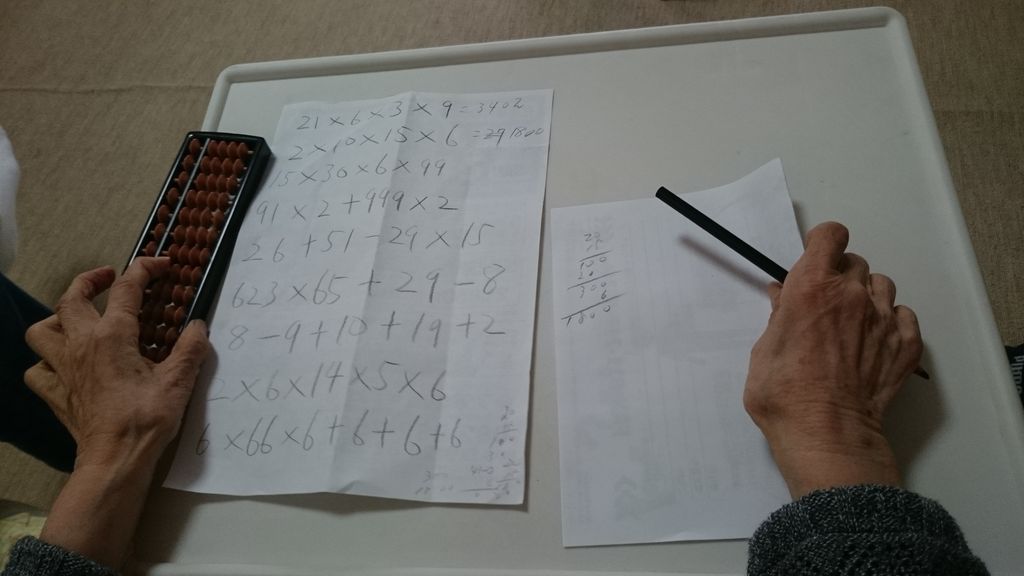 21×6×3×9=3402
2×10×15×6=291800
15×30×6×99
91×2+999×2
26+51-29×15
623×65+29-8
8-9+10+19+2
2×6×14×5×6
6×66×6+6+6+6